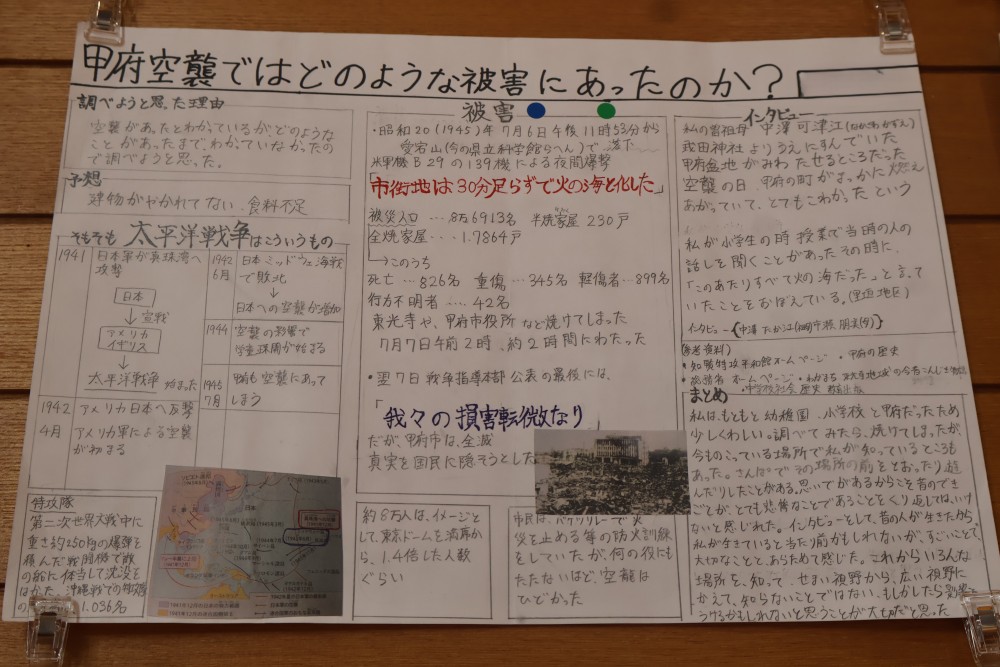 甲府空襲ではどのような被害にあったのか?
調べようと思った理由
空襲があったとわかっているが、どのような
ことがあったまで、わかっていなかったの
で調べようと思った。
予想
建物がやかれてない、食料不足
そもそも 太平洋戦争はこういうもの
1941
日本軍が真珠湾へ
攻撃
日本
↓宣戦
アメリカ
イギリス
↓
太平洋戦争 始まった
1942
4月
アメリカ日本へ反撃
アメリカ軍による空襲
が初まる
1942
6月
日本ミッドウェ海戦
で敗北
↓
日本への空襲が増加
1944
空襲の影響で
学童疎開が始まる
1945
7月
甲府も空襲にあって
しまう
特攻隊
第二次世界大戦中に
重さ約250kgの爆弾を
積んだ戦闘機で敵
の船に体当して沈没を
はかった。沖縄戦での
1.036名
被害
・昭和20(1945)年7月6日午後11時53分から
愛宕山(今の県立科学館らへん)で 落下
米軍機B29の139機による夜間爆撃
「市街地は30分足らずで火の海と化した」
被災人口 …8万6913名 半焼家屋 230戸
全焼家屋・・・1.7864戸
→このうち
死亡 …826名 重傷 …345名 軽傷者…899名
行方不明者 ・・・ 42名
東光寺や、甲府市役所 など焼けてしまった
7月7日午前2時、約2時間にわたった
・翌7日 戦争指導本部 公表の最後には、
「我々の損害転微なり
だが、甲府市は、全滅
真実を国民に隠そうとした
約8万人は、イメージと
して、東京ドームを満席から
1.4倍した人数
ぐらい
市民は、バケツリレーで火
災を止める等の防火訓練
をしていたが、何の役にも
たたないほど、空襲は
ひどかった
インタビュー
私の曽祖母 中澤可津江(なかざわかずえ)
我田神社よりうえにすんでいた
甲府盆地がみわたせるところだった
空襲の日、甲府の町がまっかに燃え
あがっていて、とてもこわかったという
私が小学生の時 授業で当時の人の
話しを聞くことがあったその時に、
「このあたりすべて火の海だった」と言って
いたことをおぼえている。(里垣地区)
インタビュー
参考資料)
・知覧特攻平和館ホームページ ・甲府の歴史
ホームページ
・中学校社会 歴史
まとめ
私は、もともと幼稚園、小学校と甲府だったため
少しくわしい。調べてみたら、焼けてしまったが、
今ものこっている場所で私が知っているところも
あった。さんぽでその場所の前をとおったり遊
んだりしたことがある。思いでがあるからこそ昔のでき
ごとが、とても悲惨なことであることをくり返してはいけ
ないと感じれた。インタビューをして、昔の人が生きたから
私が生きていると当たり前かもしれないが、すごいことで、
大切なことと、あらためて感じた。これからいろんな
場所を、知って、せまい視野から、広い視野に
かえて、知らないことではない、もしかしたら
うけるかもしれないと思うことが大切だと思った